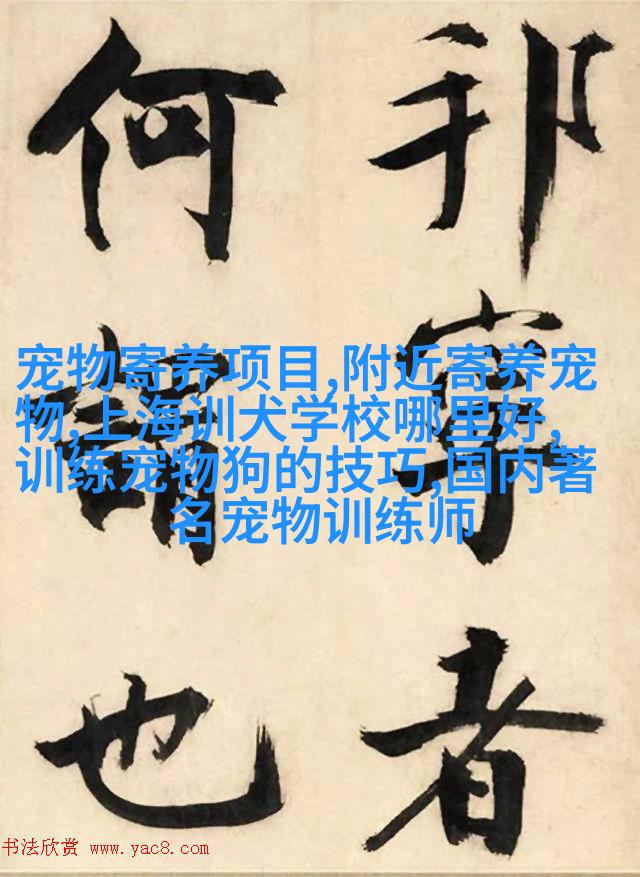 邦寧者
何謂也
宠物寄养项目,附近寄养宠
物,上海训犬学校哪里好,
训练宠物狗的技巧,国内著
名宠物训练师
书法欣赏 www.yac8.com